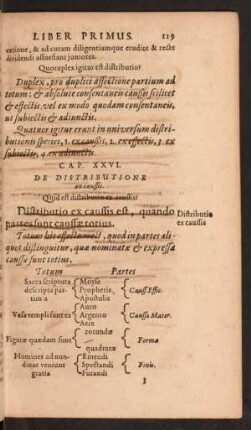 LIBER PRIMUS. 129
ratione, & ad curam diligentiamque erudite & recte
dividendi assuefiant juniores.
Quotuplex igitur est distributio?
Duplex, pro duplici affectione partium ad
totum: & absolute consentaneis caussis scilicet
& effectis, vel ex modo quodam consentaneis,
ut subiectis & adiunctis.
Quatuor igitur erunt in universum distri-
butionis species, 1. ex caussis, 2. ex effectis, 3. ex
subiectis, 4. ex adiunctis.
CAP. XXVI.
DE DISTRIBUTIONE
ex caussis.
Quid est distributio ex caussis?
Distributio ex caussis est, quando
partes sunt caussæ totius.
Distributio
ex caussis
Totum hic aestimet, quod in partes ali-
quot distinguitur, quæ nominatæ & expressæ
caussæ sunt totius.
Totum Partes
Sacra scriptura
descripta par-
tim a
Moyse
Prophetis
Apostolis
Causs. Effic.
Vasa templi sunt ex
Auro
Argento
Aere
Caussa Mater.
Figuræ quædam sunt
rotundæ
quadratæ
Forma
Homines ad nun-
dinas veniunt
gratia
Emendi
Spectandi
Furandi
Finis.
I